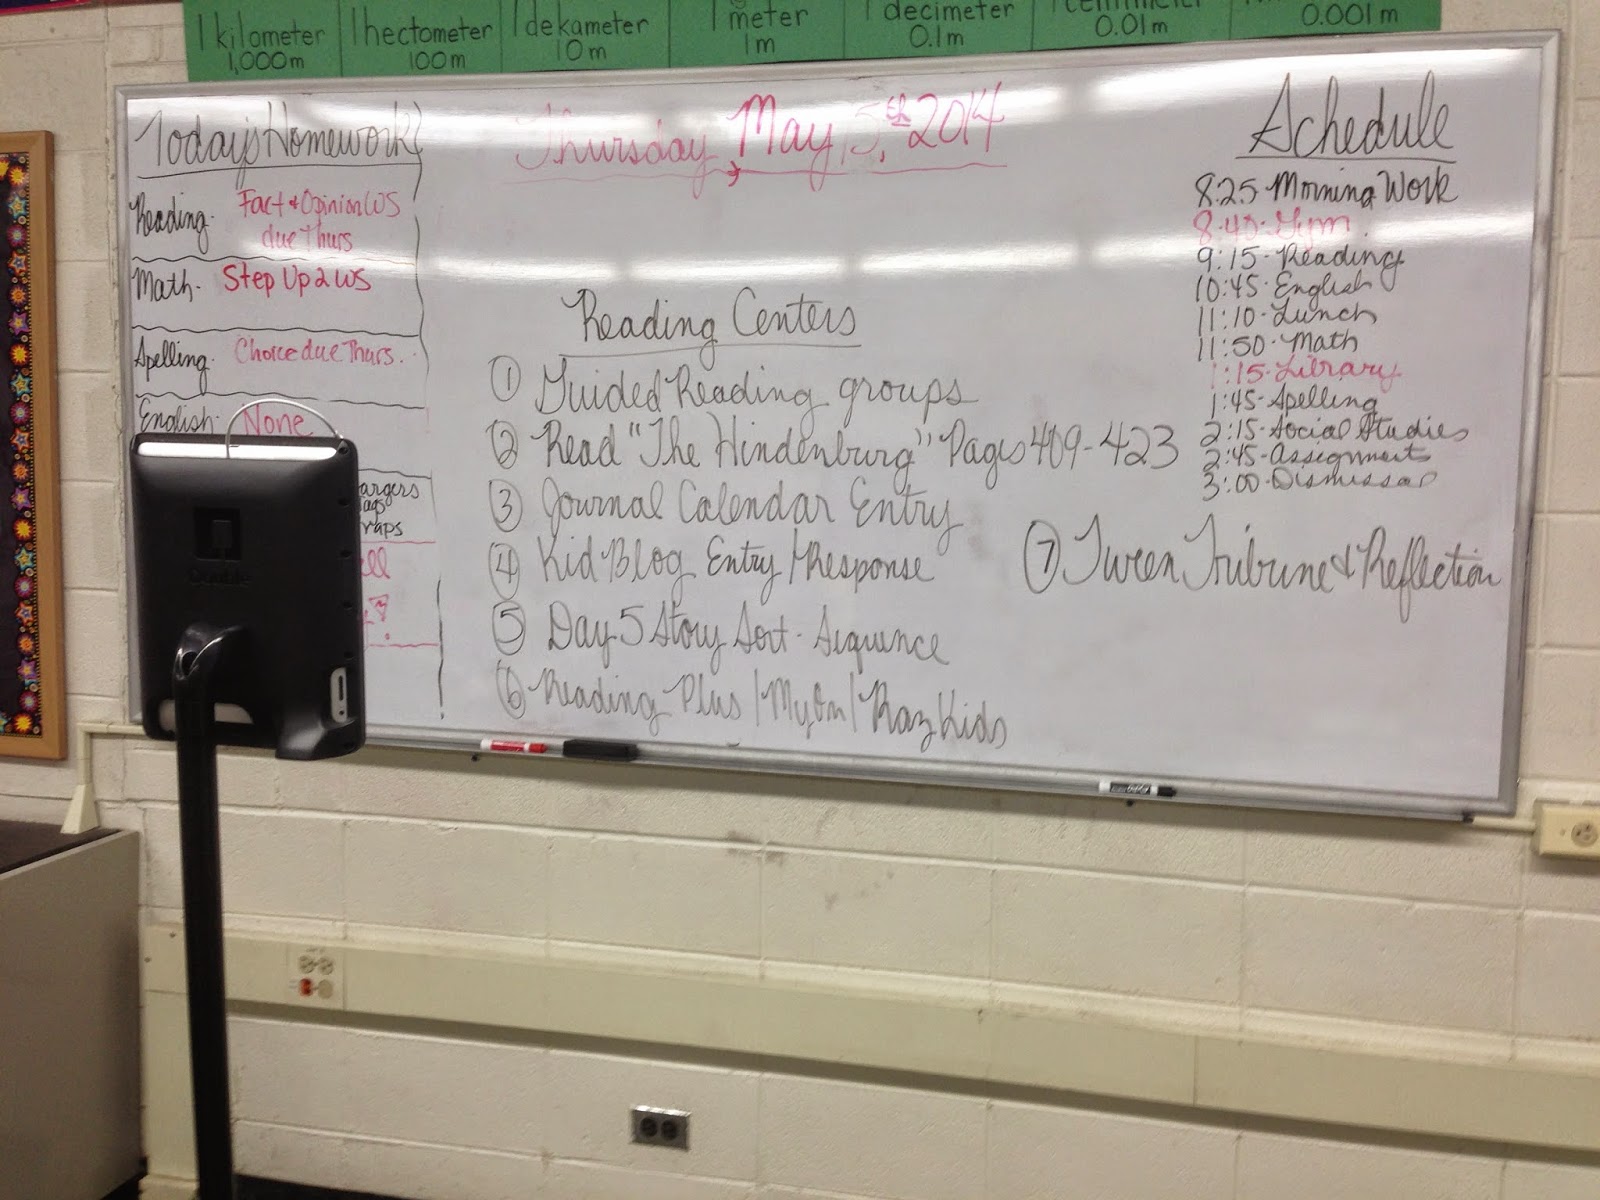 1 kilometer
1,000m
1 hectometer
100m
1 dekameter
10m
1 meter
1m
1 decimeter
0.1m
0.01m
0.001m
Today's Homework
Reading-
Fact & Opinion WS
due Thurs
Math-
Step Up 2 WS
Spelling-
Choice due Thurs.
English-
None
Thursday, May 15th, 2014
Reading Centers
1 Guided Reading groups
2 Read "The Hindenburg" Pages 409-423
3 Journal Calendar Entry
4 Kid Blog Entry/Response
5 Day 5 Story Sort-Sequence
6 Reading Plus/MyOn/Raz Kids
7 Tween Tribune & Reflection
Schedule
8:25-Morning Work
8:40-Gym
9:15-Reading
10:45-English
11:10-Lunch
11:50-Math
1:15-Library
1:45-Spelling
2:15-Social Studies
2:45-Assignments
3:00-Dismissal
Double